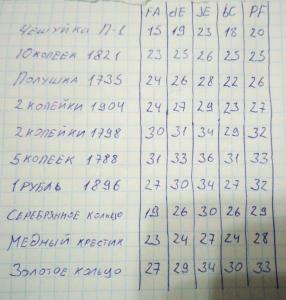 FA dE JE bC PF
Чешуйка П-I 15 19 23 18 20
10 копеек 1821 23 25 26 25 25
Полушка 1735 24 26 28 22 26
2 копейки 1904 24 27 29 23 27
2 копейки 1798 30 31 34 29 32
5 копеек 1788 31 33 36 31 33
1 рубль 1896 27 30 34 27 32
Серебрянное кольцо 19 26 30 26 29
Медный крестик 23 24 27 24 28
Золотое кольцо 27 29 34 30 33